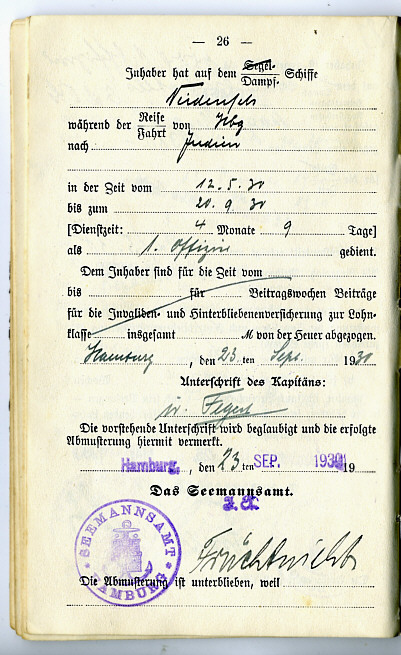 — 26 —
Inhaber hat auf dem Segel- Schiffe
Dampf-
während der Reise von Hbg
Fahrt
nach Indien
in der Zeit vom 12.5.30
bis zum 20.9.30
[Dienstzeit: 4 Monate 9 Tage]
als 1. Offizier gedient.
Dem Inhaber sind für die Zeit vom
bis für Beitragswochen Beiträge
für die Invaliden- und Hinterbliebenenversicherung zur Lohn-
klasse insgesamt M von der Heuer abgezogen.
Hamburg, den 23 ten Sept. 1930
Unterschrift des Kapitäns:
Die vorstehende Unterschrift wird beglaubigt und die erfolgte
Abmusterung hiermit vermerkt.
Hamburg, den 23 ten SEP. 1930 19
Das Seemannsamt.
SEEMANNSAMT
HAMBURG
Die Abmusterung ist unterblieben, weil